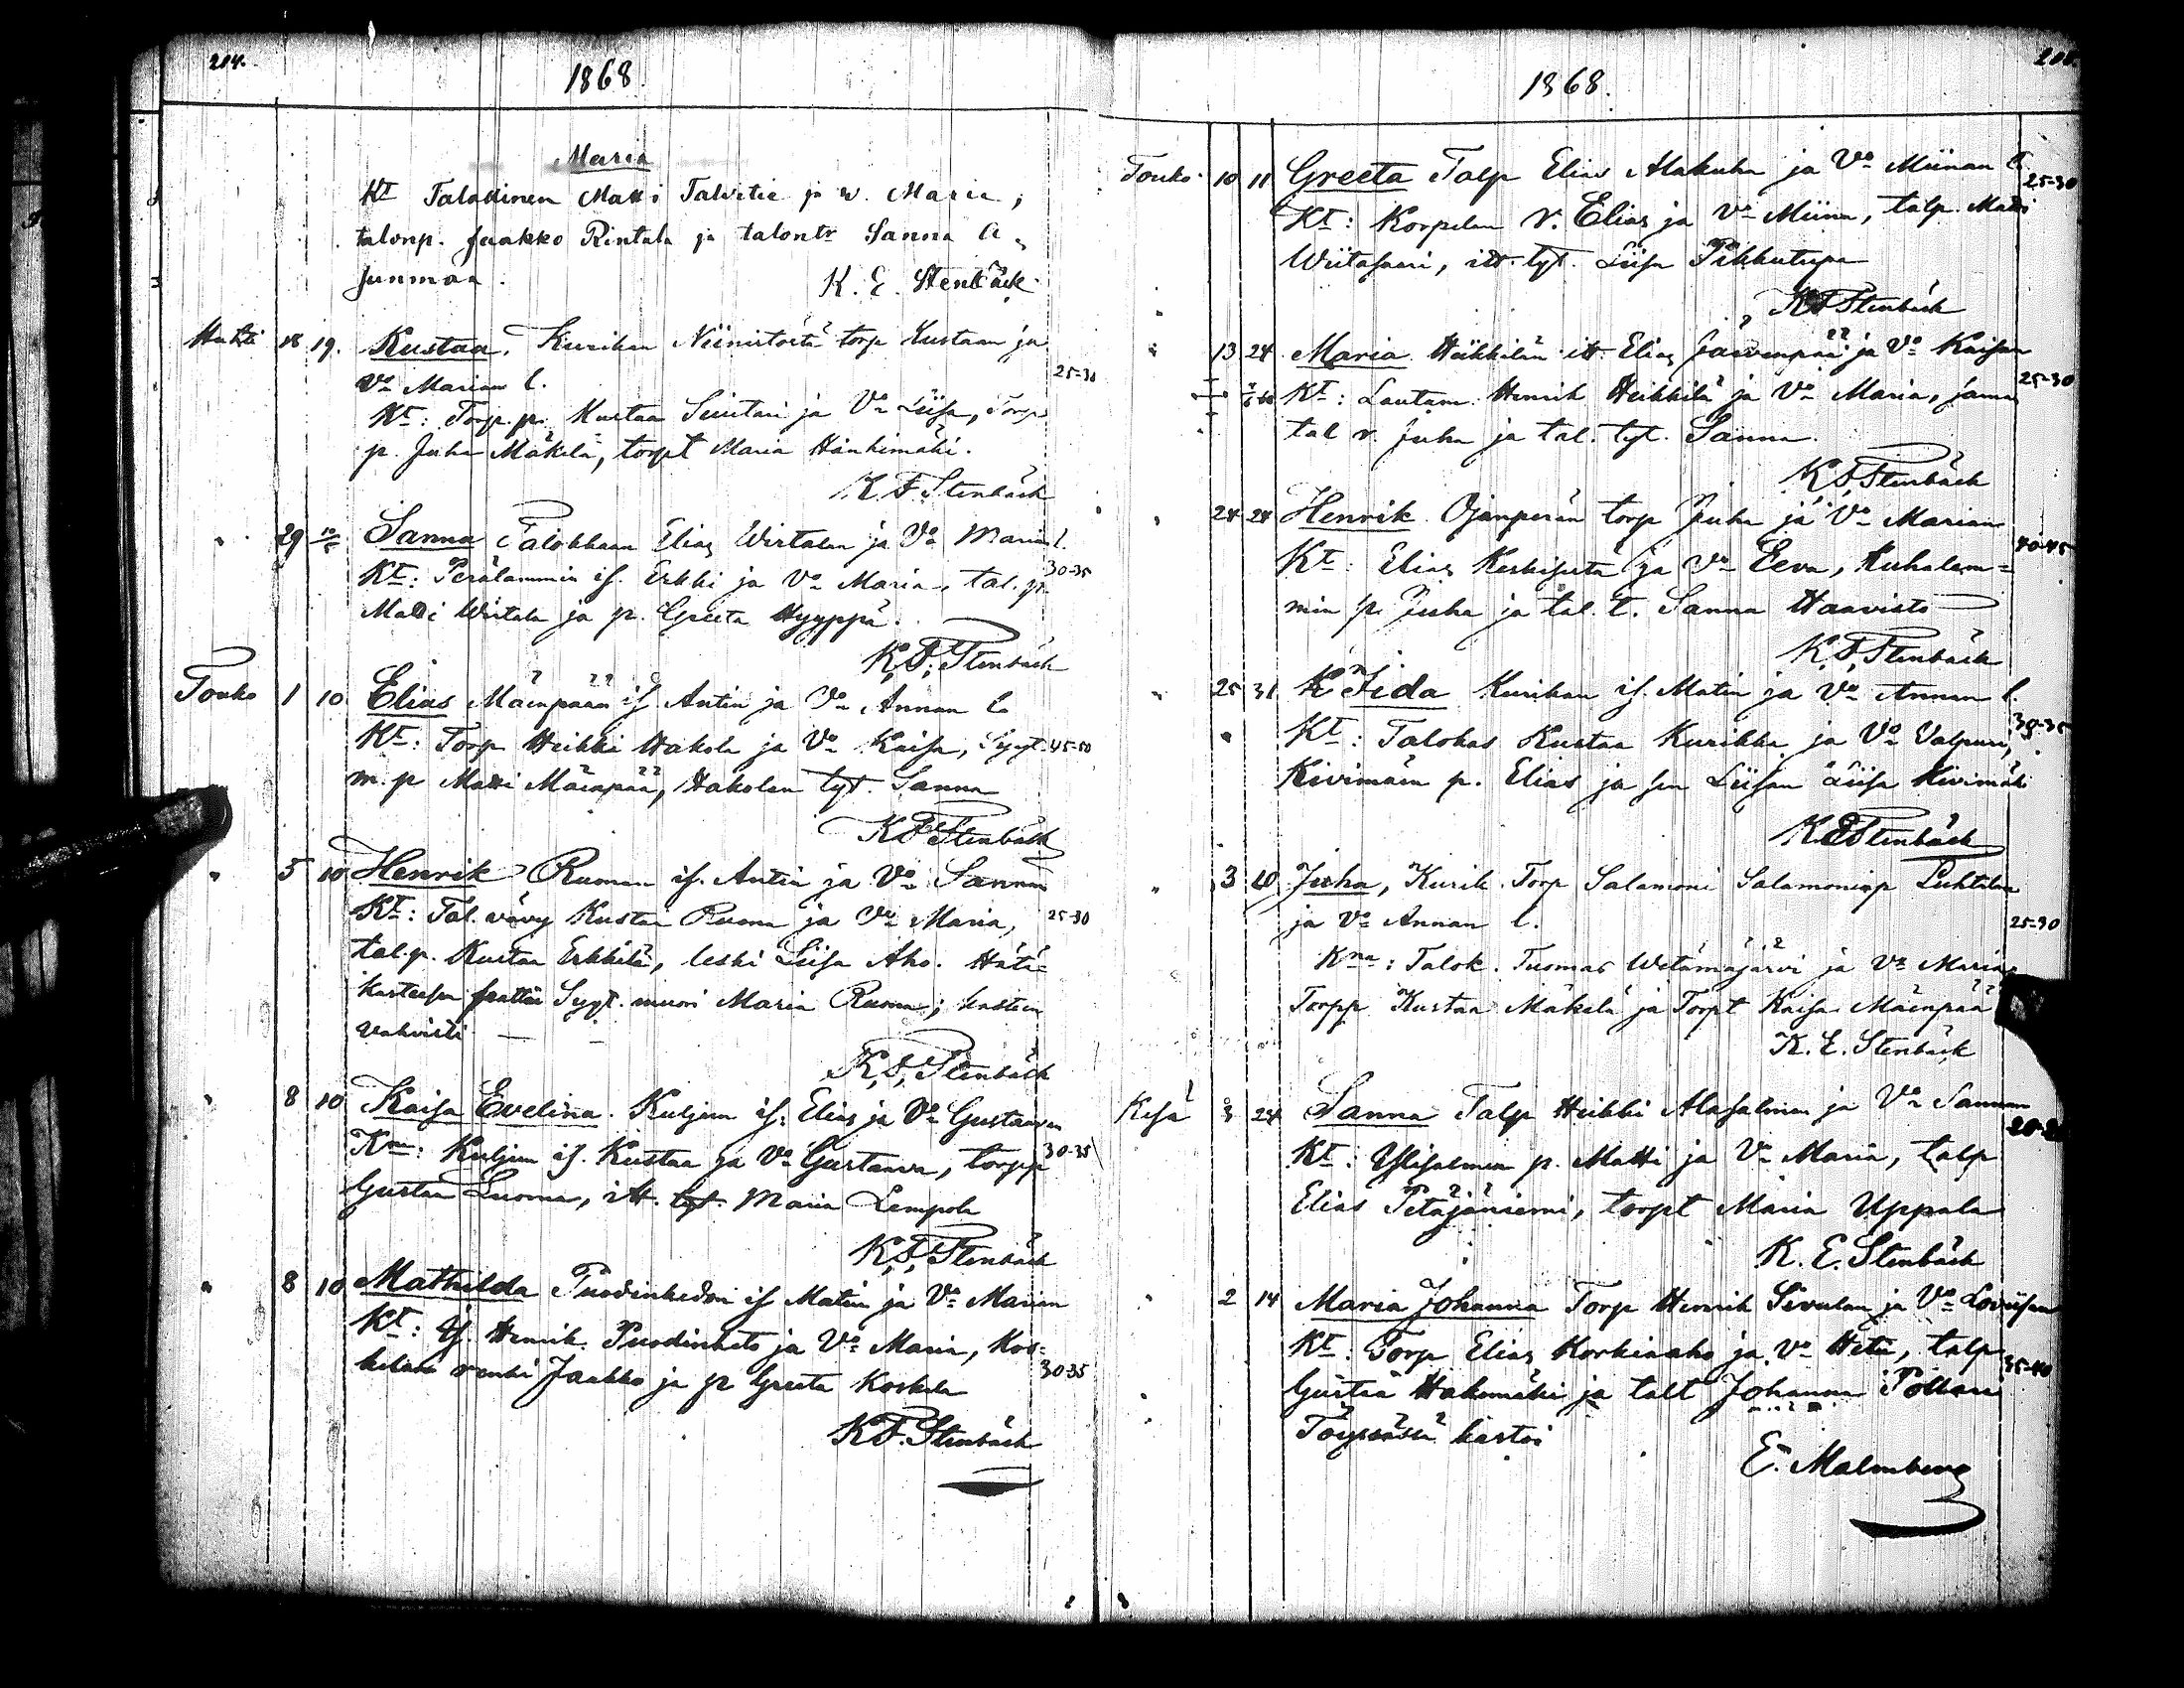 204.
1868
Maria
Kt Talollinen Matti Talvitie ja w. Maria,
talonp. Jaakko Rintala ja talontr Sanna A
Junmaa. K. E. Stenbäck
Huhti 18 19. Kustaa. Kurikan Niinistöstä torp Kustaan ja
Vo Marian l. 25-30
Kt: Torp. p. Kustaa Luutari ja Vo Liisa, Torp
p. Juha Mäkelä, torpt Maria Hänkimäki.
K F Stenbäck
" 29 10/5 Sanna Talokkaan Elias Wirtalan ja Vo Marian l.
Kt: Perälammin if. Erkki ja Vo Maria, tal. p. 30-35
Matti Wirtala ja p. Greeta Hyyppä.
K. F. Stenbäck
Touko 1 10 Elias Mäenpään if Antin ja Vo Annan l.
Kt: Torp Heikki Hakola ja Vo Kaisa, Syyt. 45-50
m. p Matti Mäenpää, Hakolan tyt. Sanna
K F Stenbäck
" 5 10 Henrik Ruman if. Antin ja Vo Sannan
Kt: Tal. vävy Kustaa Ruma ja Vo Maria, 25-30
tal. p. Kustaa Erkkilä, leski Liisa Aho. Hätä-
kasteesen Syyt. muori Maria Ruma; kasteen
vahvisti —
K. F. Stenbäck
" 8 10 Kaisa Evelina. Kuljun if. Elias ja Vo Gustaavan
Kna: Kuljun if. Kustaa ja Vo Gustaava, torpp 30-35
Gustaa Luoma, itt. tyt. Maria Lempola
K. F. Stenbäck
" 8 10 Mathilda Puodinkedon if Matin ja Vo Marian
Kt: if. Henrik Puodinketo ja Vo Maria, Kos-
kelan renki Jaakko ja p Greeta Koskela 30-35
K F. Stenbäck
1868.
Touko 10 11 Greeta Talp Elias Alakuha ja Vo Miinan l. 25-30
Kt: Korpelan r. Elias ja Vo Miina, talp. Matti
Wiitasaari, itt. tyt. Liisa Pikkutupa
K F Stenbäck
" 13 24 Maria Heikkilän itt. Elias Jaavenpää ja Vo Kaisan
Kt: Lautam. Henrik Heikkilä ja Vo Maria, saman 25-30
tal r. Juha ja tal. tyt. Sanna.
K F Stenbäck
" 24 24 Henrik Ojanperän torp Juha ja Vo Marian
Kt: Elias Keskisuta ja Vo Eeva, Kuhalam- 40-45
min p. Juha ja tal. t. Sanna Haavisto
K. F. Stenbäck
" 25 31 Iida Kurikan if. Matin ja Vo Annan l.
Kt: Talokas Kustaa Kurikka ja Vo Valpuri, 30-35
Kivimäen p. Elias ja Liisa Kivimäki
K F Stenbäck
" 3 20 Juha, Kurik. Torp Salamoni Salamoninp Luhtalan
ja Vo Annan l. 25-30
Kna: Talok. Tuomas Wetämäjärvi ja Vo Maria,
Torpp Kustaa Mäkelä ja Torpt Kaisa Mäenpää
K. E. Stenbäck
Kesä 3 24 Sanna Talp Heikki Alasalmen ja Vo Sannan
Kt: Ylisalmen p. Matti ja Vo Maria, talp
Elias Petäjäniemi, torpt Maria Uppala
K. E. Stenbäck
" 2 14 Maria Johanna Torp Henrik Sivulan ja Vo Loviisan
Kt: Torp Elias Korkiaaho ja Vo Heta, talp 35-40
Gustaa Hakomäki ja talt Johanna Pollari
Töysässä kastoi
E. Malmberg